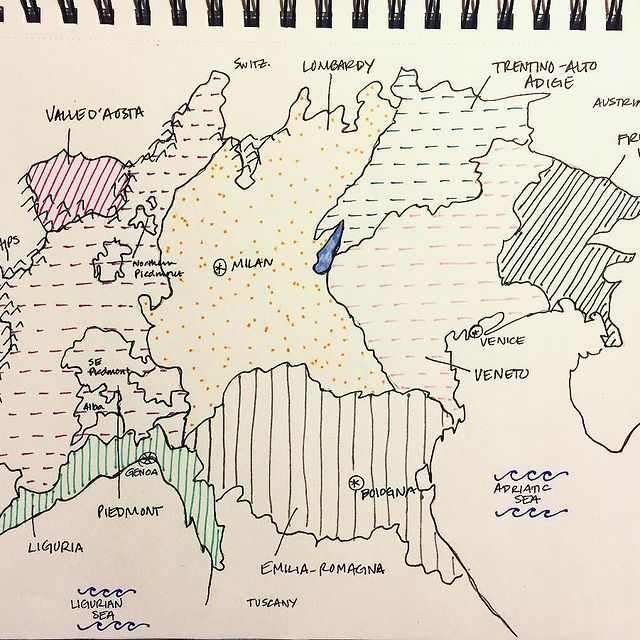 SWITZ.
LOMBARDY
TRENTINO-ALTO
ADIGE
AUSTRIA
VALLE D'AOSTA
FRI
ALPS
Northern
Piedmont
MILAN
VENICE
SE
Piedmont
VENETO
Alba
GENOA
BOLOGNA
ADRIATIC
SEA
PIEDMONT
LIGURIA
EMILIA-ROMAGNA
LIGURIAN
SEA
TUSCANY